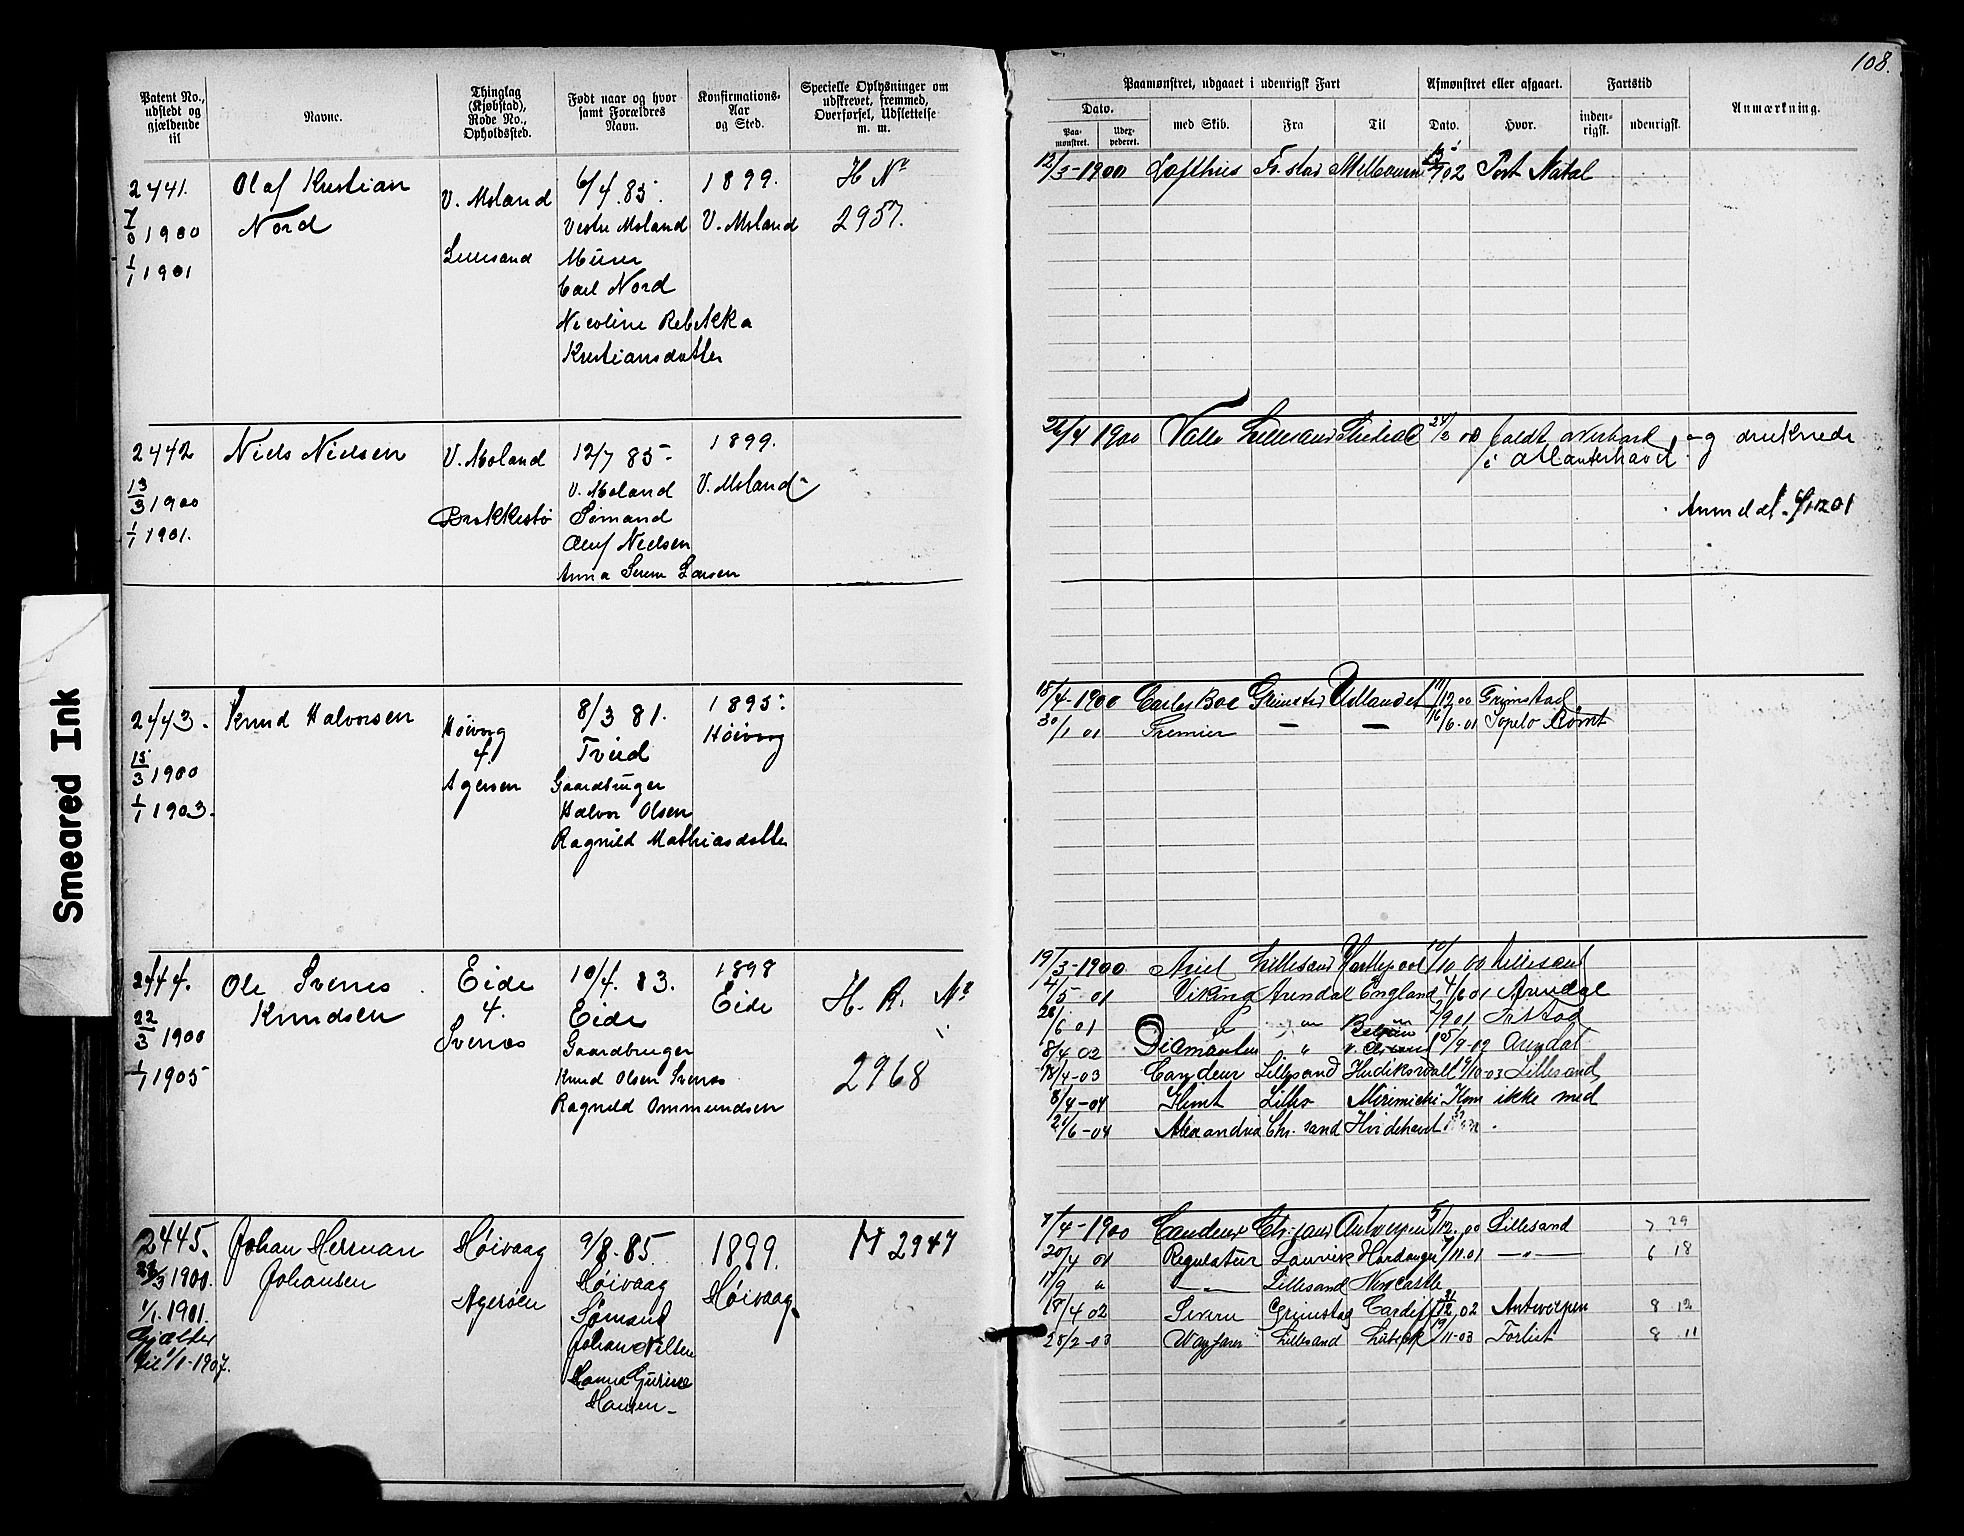 108.
Patent No., udstedt og gjældende til
Navne.
Thinglag (Kjøbstad), Rode No., Opholdssted.
Født naar og hvor samt Forældres Navn.
Konfirmations-Aar og Sted.
Specielle Oplysninger om udskrevet, fremmed, Overførsel, Udslettelse m. m.
Paamønstret, udgaaet i udenrigsk Fart
Afmønstret eller afgaaet.
Fartstid
Anmærkning.
Dato.
Paa-mønstret.
Udex-pederet.
med Skib.
Fra
Til
Dato.
Hvor.
inden-rigsk.
udenrigsk.
2441.
1900
1/1 1901
Olaf Kristian
Nord
V. Moland
Lillesand
6/4. 85.
Vestre Moland
Murer
Carl Nord
Nicoline Rebekka
Kristiansdatter
1899.
V. Moland
H Nr
2957.
12/3-1900 Lofthus Fr. stad Melbourne 02 Port Natal
2442
13/3 1900
1/1 1901.
Niels Nielsen
V. Moland
Brekkestø
12/7 85.
V. Moland
Sømand
Oluf Nielsen
Anna Serene Larsen
1899.
V. Moland
26/4 1900 Valle Lillesand 00 faldt overbord og druknede
i Atlanterhavet.
Anmeldt 01
2443.
15/3 1900
1/1 1903.
Knud Halvorsen
Høivåg
4.
Agerøen
8/3 81.
Tveid
Gaardbruger
Halvor Olsen
Ragnild Mathiasdatter
1895.
Høivåg
18/4-1900 Carles Boe Grimstad Udlandet 12.00 Grimstad
30/1 01 Premier — — 16/6-01 Sopelo Rømt
2444.
22/3 1900
1/1 1905
Ole Svenes
Knudsen
Eide
4.
Svenes
10/4. 83.
Eide
Gaardbruger
Knud Olsen Svenes
Ragnild Ommundsen
1898
Eide
H. R. Nr
2968
19/3-1900 Ariel Lillesand Hartlepool 10.00 Lillesand
4/5 01 Viking Arendal England 4/6 01 Arendal
28/6 01 " " 9 01
8/4 02 Diamanten " 9-02 Arendal
18/4-03 Candeur Lillesand Hudiksvall 19/10-03 Lillesand
8/4-04 Hemt Lilles Mirimichi Kom ikke med
21/6-04 Alexandria Chr. sand Hvidehavet
2445.
28/3 1900.
1/1. 1901.
Gjælder
til 1/1-1907.
Johan Herman
Johansen
Høivaag
Agerøen
9/8. 85
Høivaag
Sømand
Johan Nilsen
Hanna Gurine
Hansen
1899.
Høivaag
H 2947
7/4-1900 Candeur Chr. sand Antwerpen 5/12.00 Lillesand 7 29
20/4 01 Regulatur Laurvik Hardanger 11.01 —"— 6 18
17/9 " —"— Lillesand Newcastle
18/4 02 Severn Grimstad Cardiff 31/12 02 Antwerpen 8 12
28/2-03 Wayfarer Lillesand Lübeck 19/11-03 Forlist 8 11
Smeared Ink